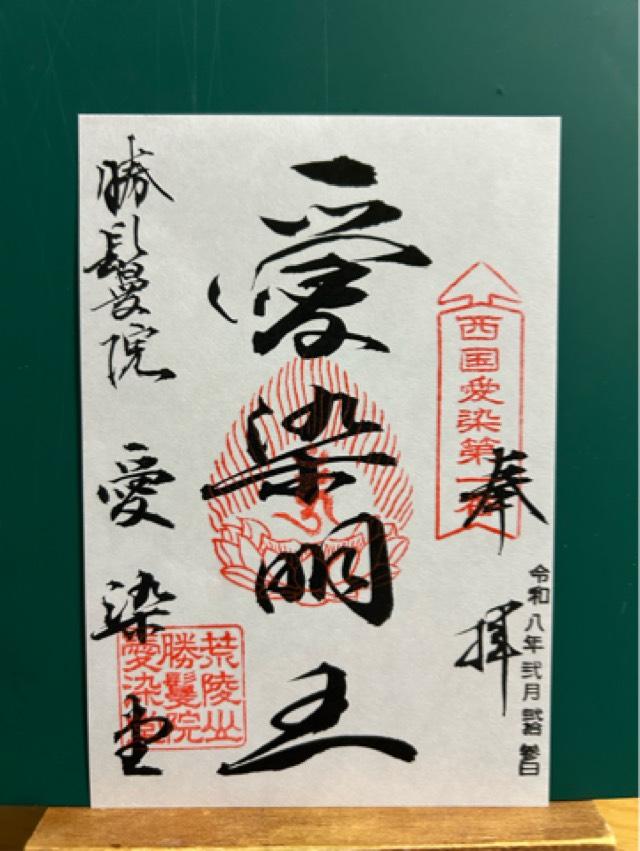 奉拝
西国愛染第一番
令和八年弐月弐拾参日
愛染明王
勝鬘院 愛染堂
荒陵山
勝鬘院
愛染堂